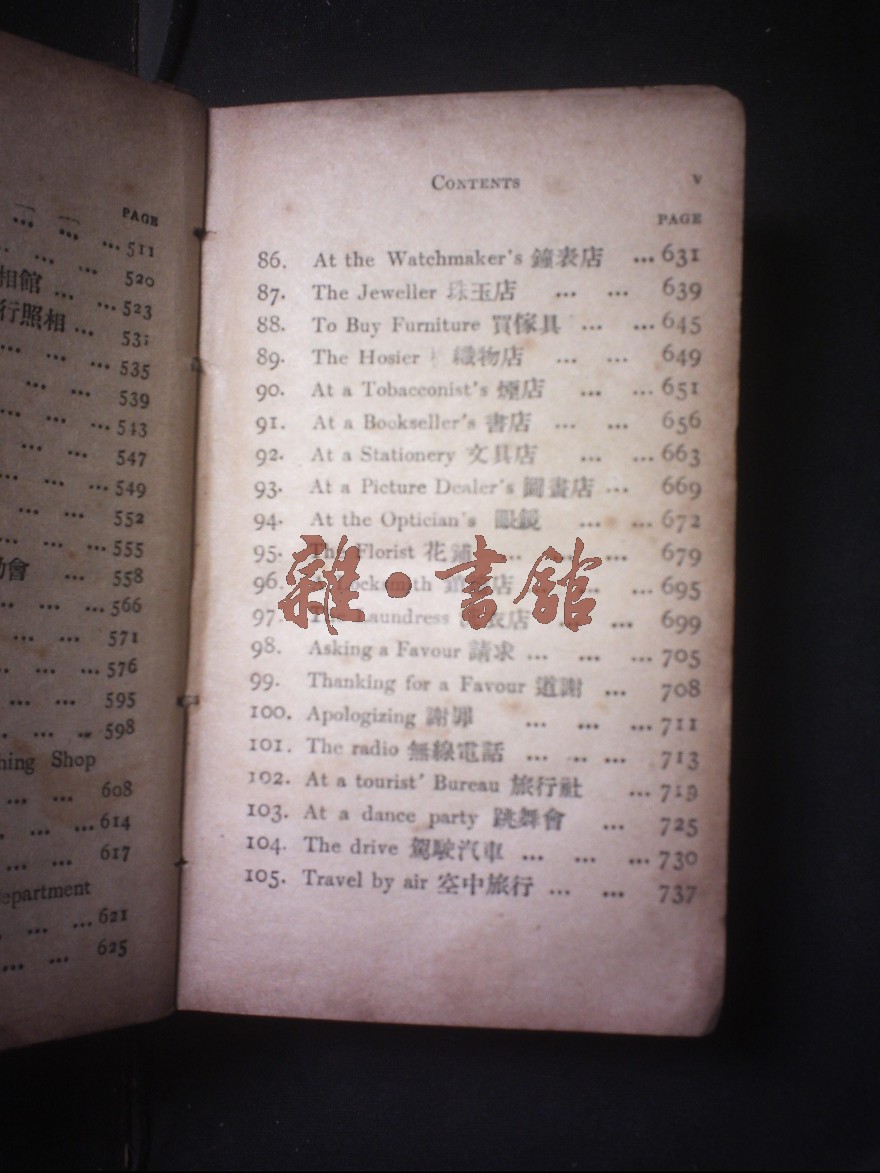 PAGE
... ... ... 511
... ... ... 520
相館 ... ... 523
行照相 ... 53
... ... 535
... ... 539
... ... 543
... ... 547
... ... ... 549
... ... 552
... ... ... 555
會 ... 558
... ... 566
... ... 571
... ... ... 576
... ... 595
... ... 598
ning Shop
... ... 608
... ... ... 614
... ... 617
epartment
... ... 621
... ... 625
CONTENTS v
PAGE
86. At the Watchmaker's 鐘表店 ... 631
87. The Jeweller 珠玉店 ... ... 639
88. To Buy Furniture 買傢具 ... ... 645
89. The Hosier 織物店 ... ... 649
90. At a Tobacconist's 煙店 ... ... 651
91. At a Bookseller's 書店 ... ... 656
92. At a Stationery 文具店 ... ... 663
93. At a Picture Dealer's 圖畫店 ... 669
94. At the Optician's 眼鏡 ... ... 672
95. The Florist 花 ... ... ... 679
96. Locksmith 店 ... ... 695
97. The Laundress 衣店 ... ... 699
98. Asking a Favour 請求 ... ... ... 705
99. Thanking for a Favour 道謝 ... 708
100. Apologizing 謝罪 ... ... ... 711
101. The radio 無線電話 ... ... ... 713
102. At a tourist' Bureau 旅行社 ... 719
103. At a dance party 跳舞會 ... 725
104. The drive 駕駛汽車 ... ... ... 730
105. Travel by air 空中旅行 ... ... 737
雜·書館